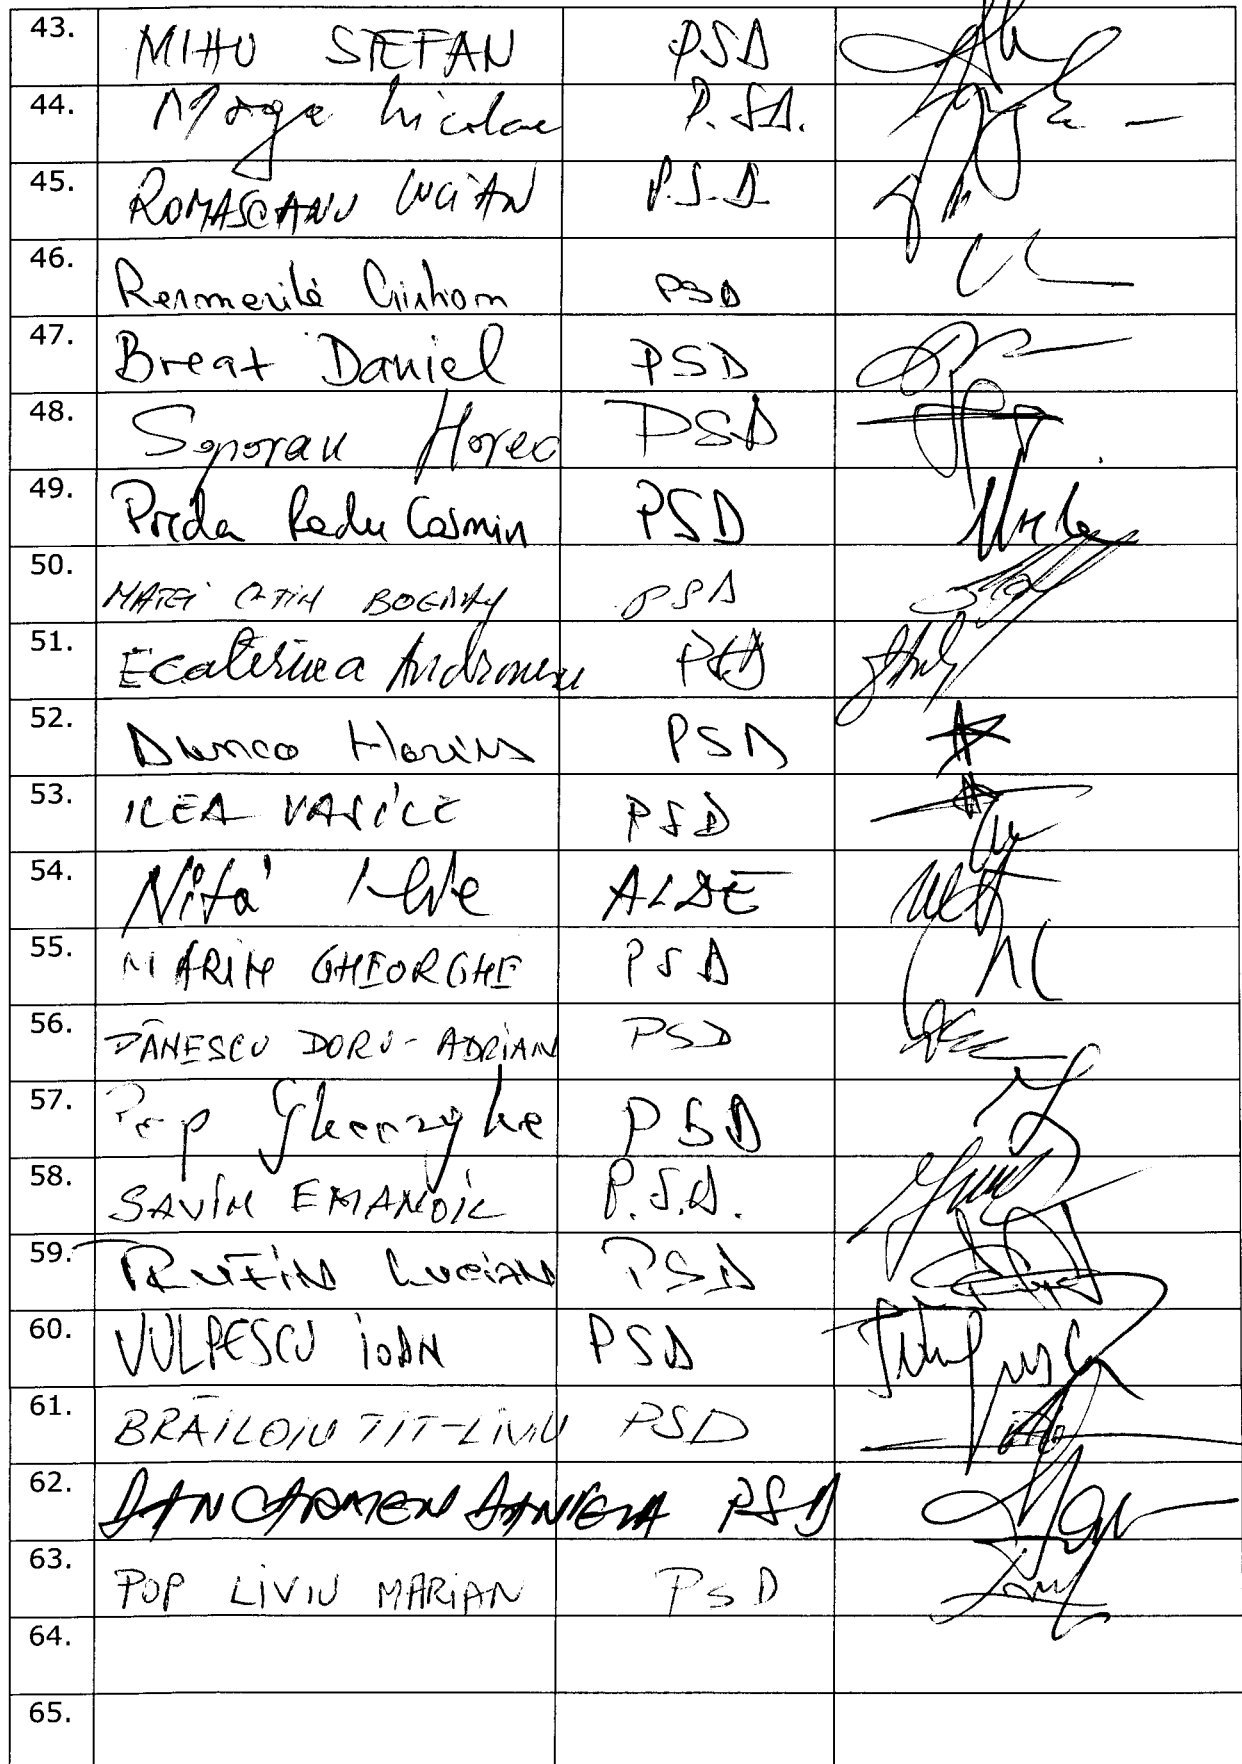 43. MIHU STEFAN PSD
44. Moga Nicolae P.SD.
45. ROMASCANU LUCIAN P.S.D
46. Resmeriță Cristian PSD
47. Breaz Daniel PSD
48. Soporan Horea PSD
49. Preda Radu Cosmin PSD
50. MATEI C-TIN BOGDAN PSD
51. Ecaterina Andronescu PSD
52. Dunca Marius PSD
53. ILEA VASILE PSD
54. Niță Ilie ALDE
55. MARIN GHEORGHE PSD
56. DĂNESCU DORU-ADRIAN PSD
57. Pop Gheorghe PSD
58. SAVIN EMANOIL P.S.D.
59. TRUFIN Lucian PSD
60. VULPESCU IOAN PSD
61. BRĂILOIU TIT-LIVIU PSD
62. DAN CARMEN DANIELA PSD
63. POP LIVIU MARIAN PSD
64.
65.